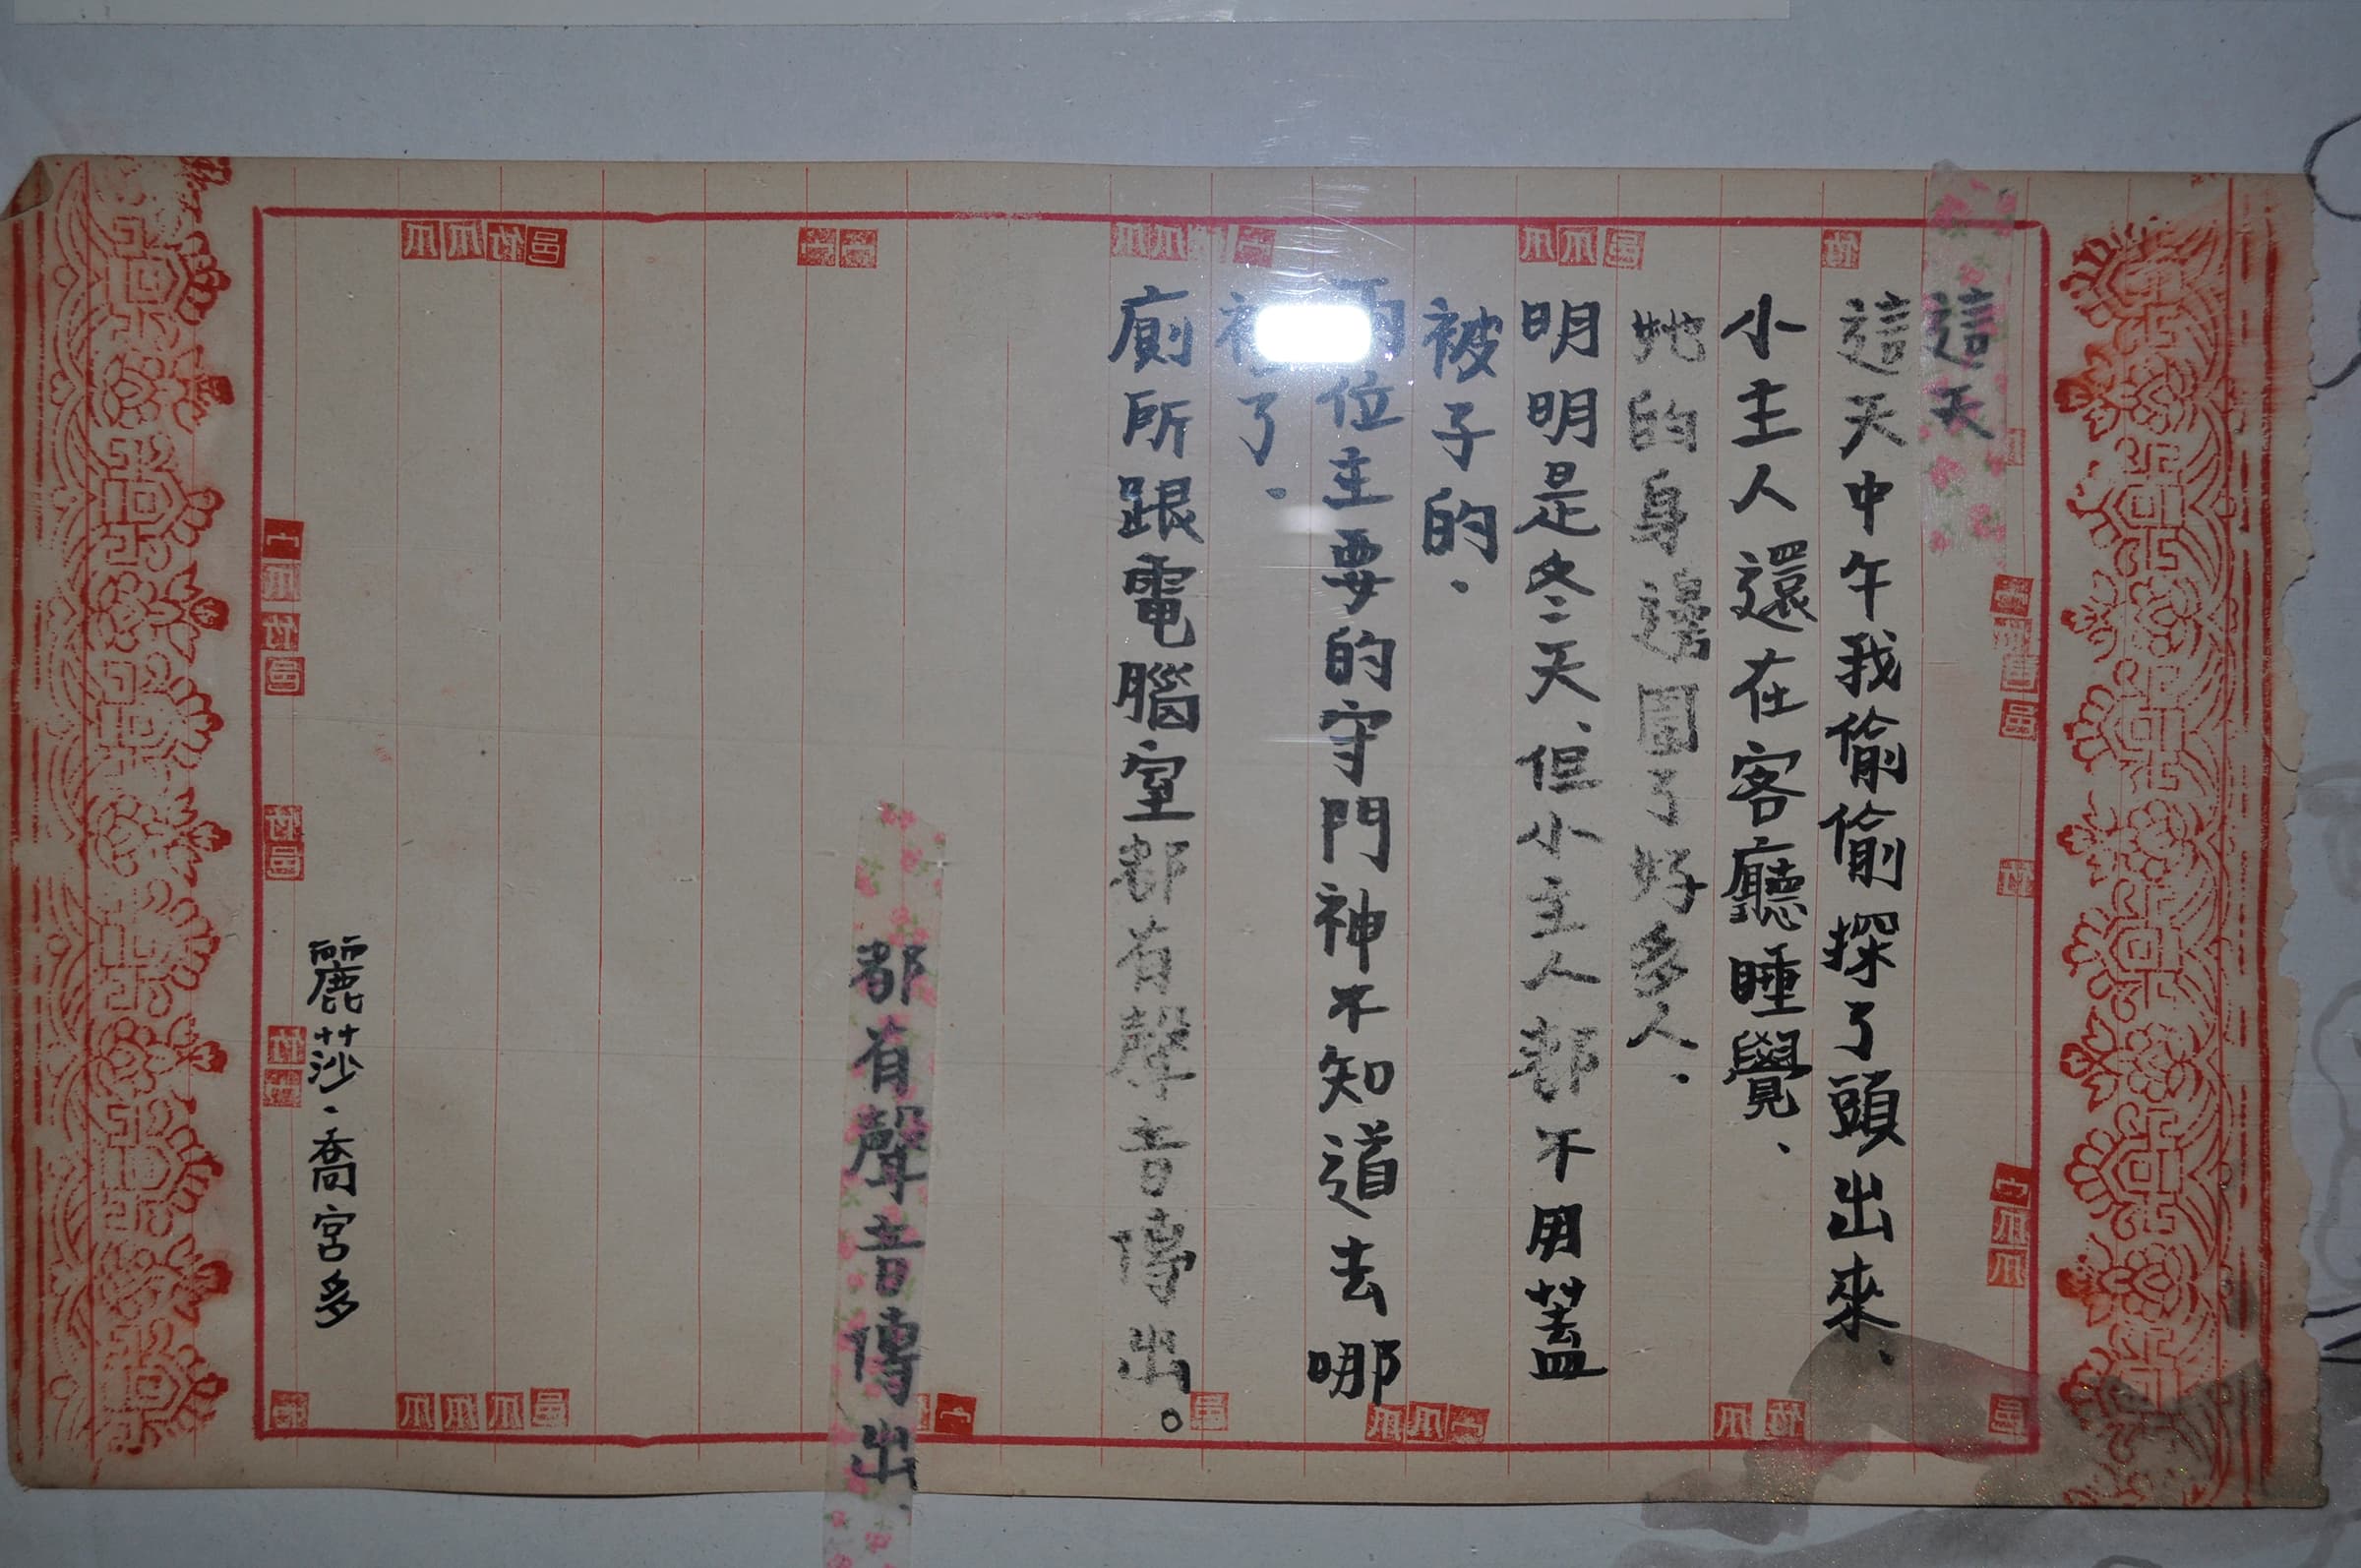 這天
這天中午我偷偷探了頭出來、
小主人還在客廳睡覺、
她的身邊圍了好多人、
明明是冬天、但小主人都不用蓋
被子的、
兩位主要的守門神不知道去哪
了、
廁所跟電腦室都有聲音傳出。
都有聲音傳出、
麗莎·喬宮多